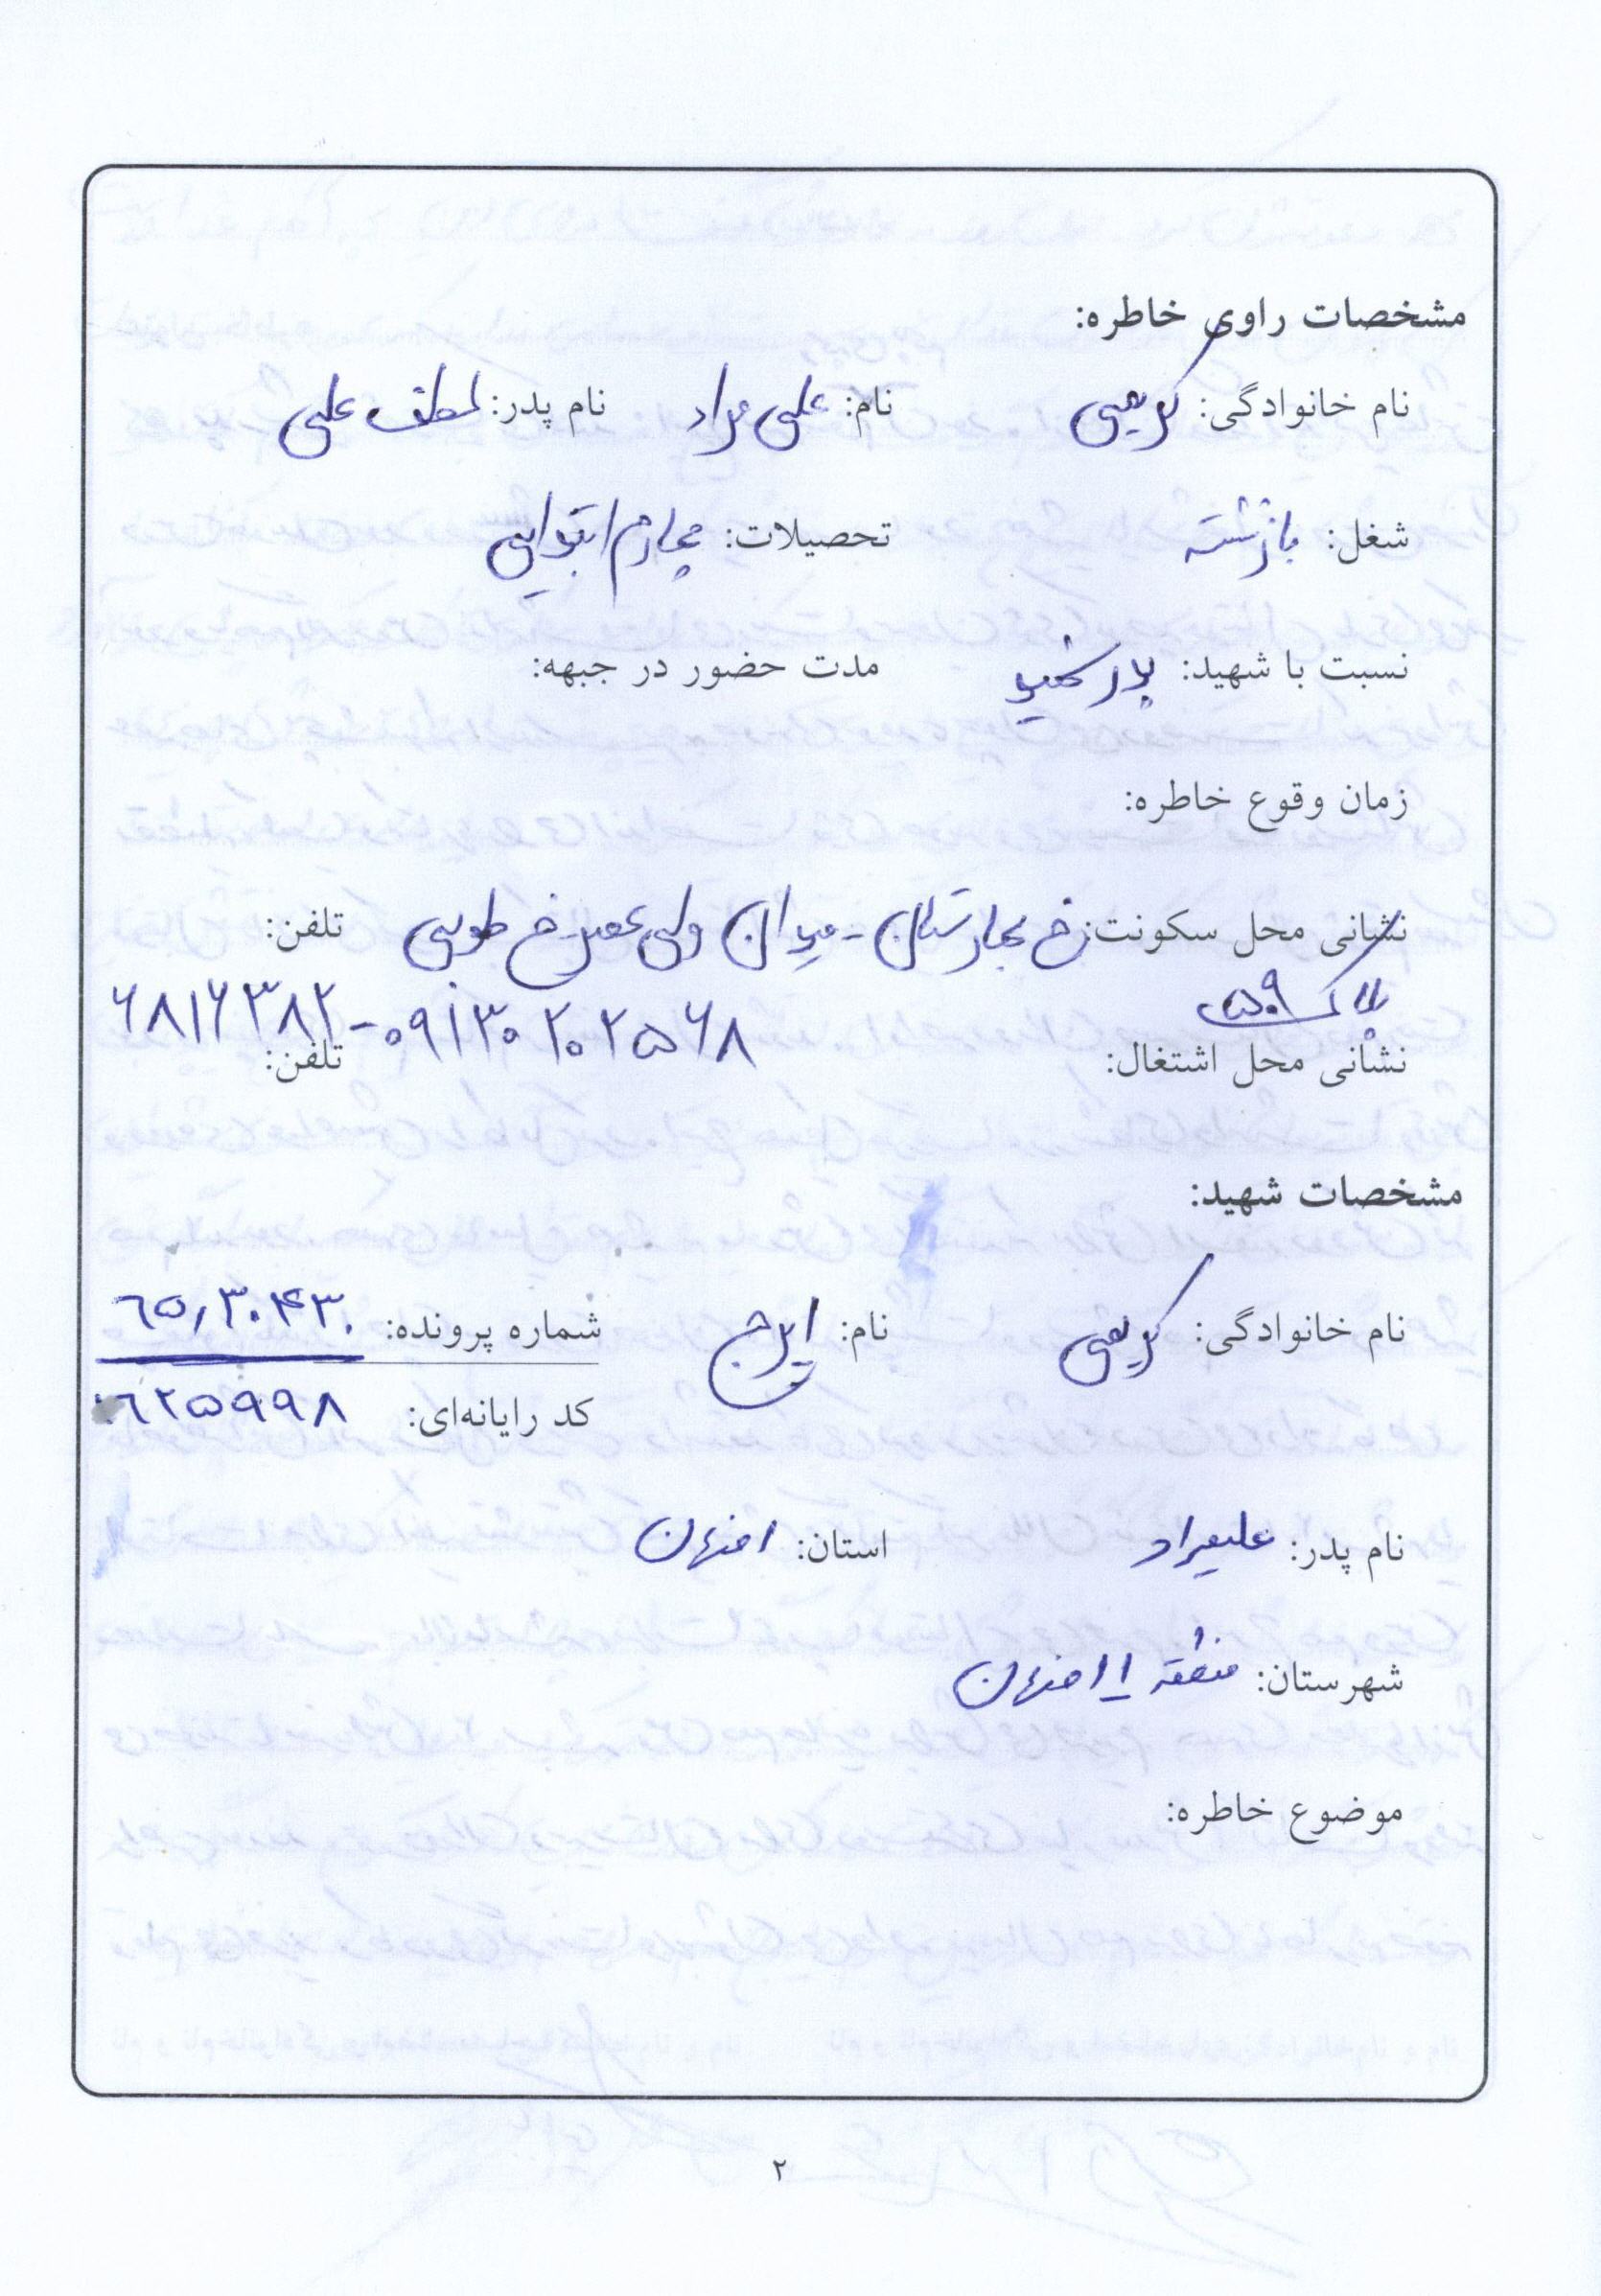 مشخصات راوی خاطره:
نام خانوادگی: کریمی نام: علی مراد نام پدر: لطف علی
شغل: بازنشسته تحصیلات: چهارم ابتدایی
نسبت با شهید: پدر شهید مدت حضور در جبهه:
زمان وقوع خاطره:
نشانی محل سکونت: خ بهارستان - میدان ولی عصر خ طوبی تلفن:
پلاک ۵۰۹ ۰۹۱۳۰۲۰۲۵۶۸ - ۶۸۱۶۳۸۲
نشانی محل اشتغال: تلفن:
مشخصات شهید:
نام خانوادگی: کریمی نام: ایرج شماره پرونده: ۶۵/۳۰۴۳۰
کد رایانه‌ای: ۶۲۵۹۹۸
نام پدر: علیمراد استان: اصفهان
شهرستان: منطقه ۱۱ اصفهان
موضوع خاطره:
۲